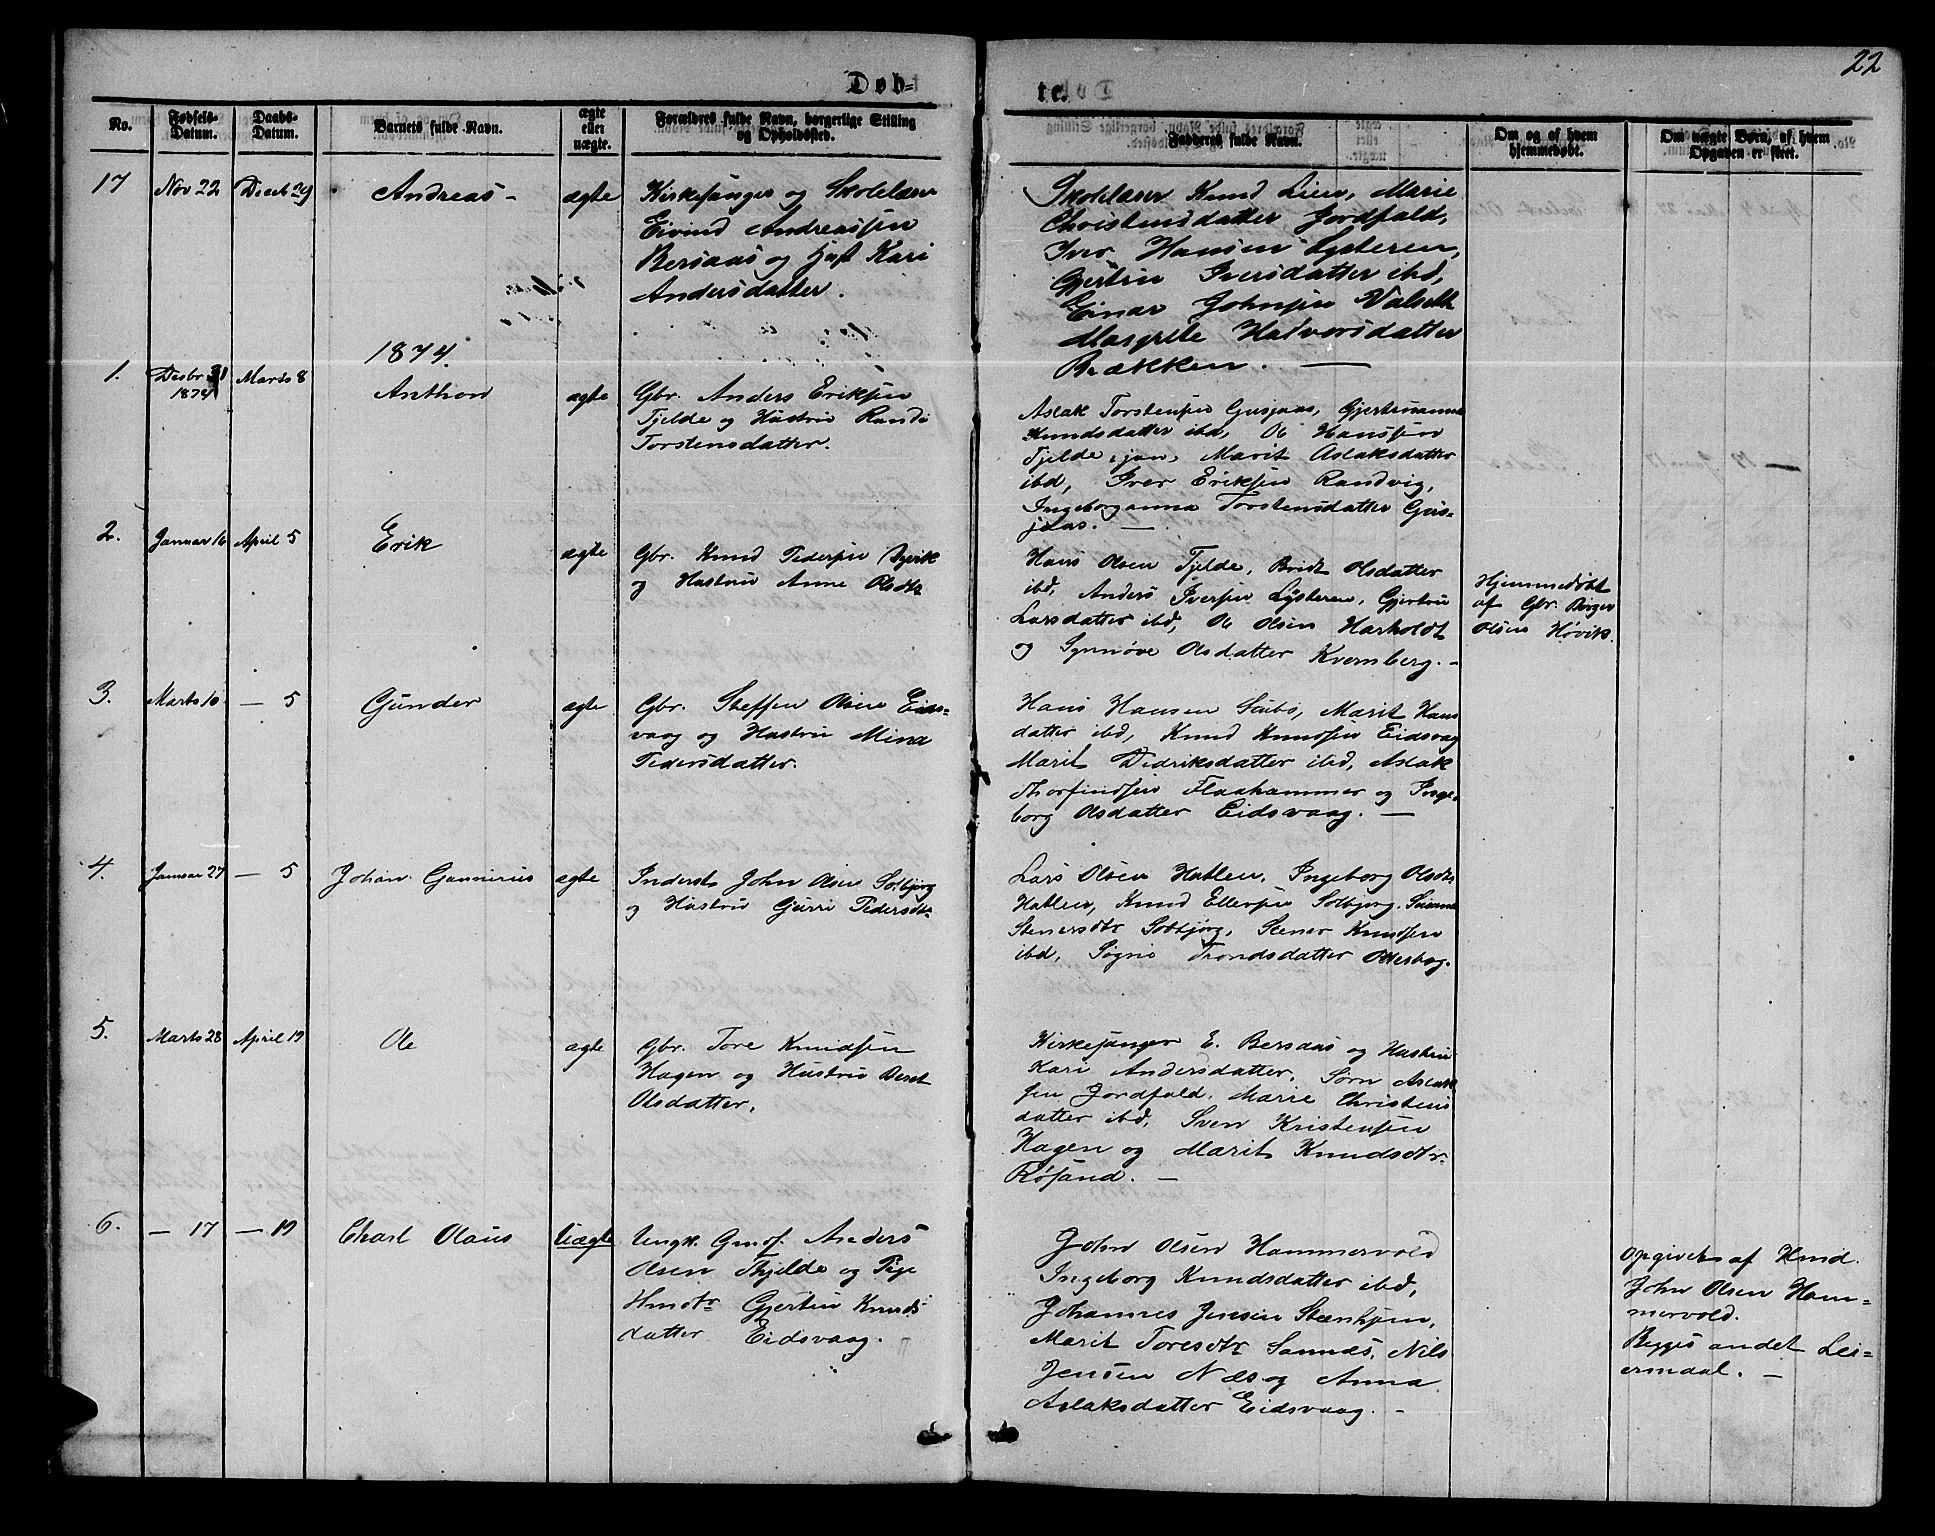 22
Døb-
te.
No.
Fødsels-Datum.
Daabs-Datum.
Barnets fulde Navn.
ægte eller uægte.
Forældres fulde Navn, borgerlige Stilling og Opholdssted.
Fadderes fulde Navn.
Om og af hvem hjemmedøbt.
Om uægte Børn, af hvem Opgaven er skeet.
17 Nov 22 Decetb 29 Andreas - ægte
Kirkesanger og Skolelærer
Eivind Andreassen
Bersaas og Hust Kari
Andersdatter.
Skolelærer Knud Lien, Marie
Christensdatter Jordfald,
Iver Hansen Lysteren,
Gjertrin Iversdatter ibd,
Einar Johnsen Valseth
Margrete Halvorsdatter
Brækken. —
1874.
1. Desbr 31 1874 Marts 8 Anthon ægte
Gbr. Anders Eriksen
Tjelde og Hustru Randi
Torstensdatter.
Aslak Torstensen Gusjaas, Gjertruanna
Knudsdatter ibd, Ole Hanssen
Tjelde, jon, Marit Aslaksdatter
ibd, Iver Eriksen Randvig,
Ingeborganna Torstensdatter Gus-
jaas. —
2. Januar 16 April 5 Erik ægte
Gbr. Knud Pedersen
og Hustru Anne Olsdtr
Hans Olsen Tjelde, Bridt Olsdatter
ibd, Anders Iversen Lysteren, Gjertru
Larsdatter ibd, Ole Olsen Harholdt
og Synnøve Olsdatter Kvernberg. -
Hjemmedøbt
af Gbr. Børger
Olsen Høvik.
3. Marts 10 — 5 Gunder ægte
Gbr. Steffen Olsen Eids-
vaag og Hustru Mina
Pedersdatter.
Hans Hansen Sæbø, Marit Hans
datter ibd, Knud Knudsen Eidsvaag
Marit Didriksdatter ibd, Aslak
Thorfindsen Flaahammer og Inge-
borg Olsdatter Eidsvaag. —
4. Januar 27 — 5 Johan Gunnerius ægte
Inderst John Olsen Solbjørg
og Hustru Gjurri Pedersdtr
Lars Olsen Hatlen, Ingeborg Olsdtr
Hatlen, Knud Ellersen Solbjørg,
Stenersdtr Solbjørg, Stener Knudsen
ibd, Søgni Trondsdatter Otterbog.
5. Marts 28 April 19 Ole ægte
Gbr. Tore Knudsen
Hagen og Hustru Beret
Olsdatter.
Kirkesanger E. Bersaas og Hustru
Kari Andersdatter, Sørn Aslak
sen Jordfald, Marie Christens
datter ibd, Sven Kristensen
Hagen og Marit Knudsdtr
Røsand. —
6. — 17 — 19 Charl Olaus Uægte
Ungk. Gmdf. Anders
Olsen Thjelde og Pige
Hmdtr Gjertru Knuds
datter Eidsvaag.
John Olsen Hammervold
Ingeborg Knudsdatter ibd,
Johannes Jensen Steenhjem,
Marit Toresdtr Sannes, Nils
Jensen Næs og Anna
Aslaksdatter Eidsvaag. -
Opgivet af Hmd.
John Olsen Ham-
mervold.
Begges andet Lei-
ermaal. —